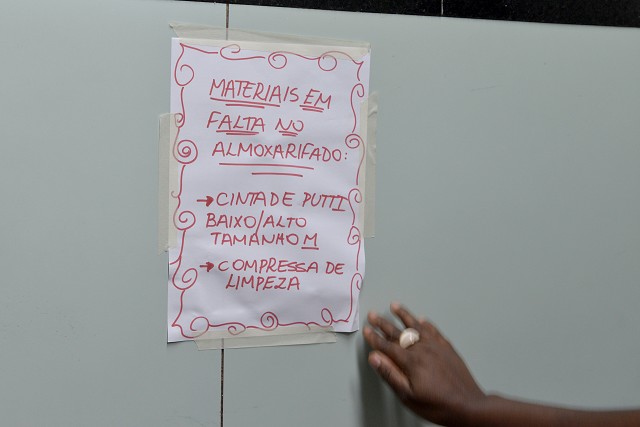 MATERIAIS EM
FALTA NO
ALMOXARIFADO:
→ CINTA DE PUTTI
BAIXO/ALTO
TAMANHO M
→ COMPRESSA DE
LIMPEZA